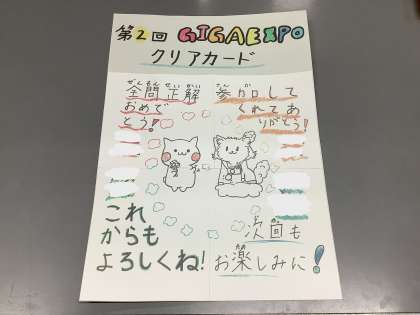 第2回 GIGAEXPO
クリアカード
全問正解
おめで
とう!
参加して
くれてあ
りがとう!
これ
からも
よろしくね!
次回も
お楽しみに!